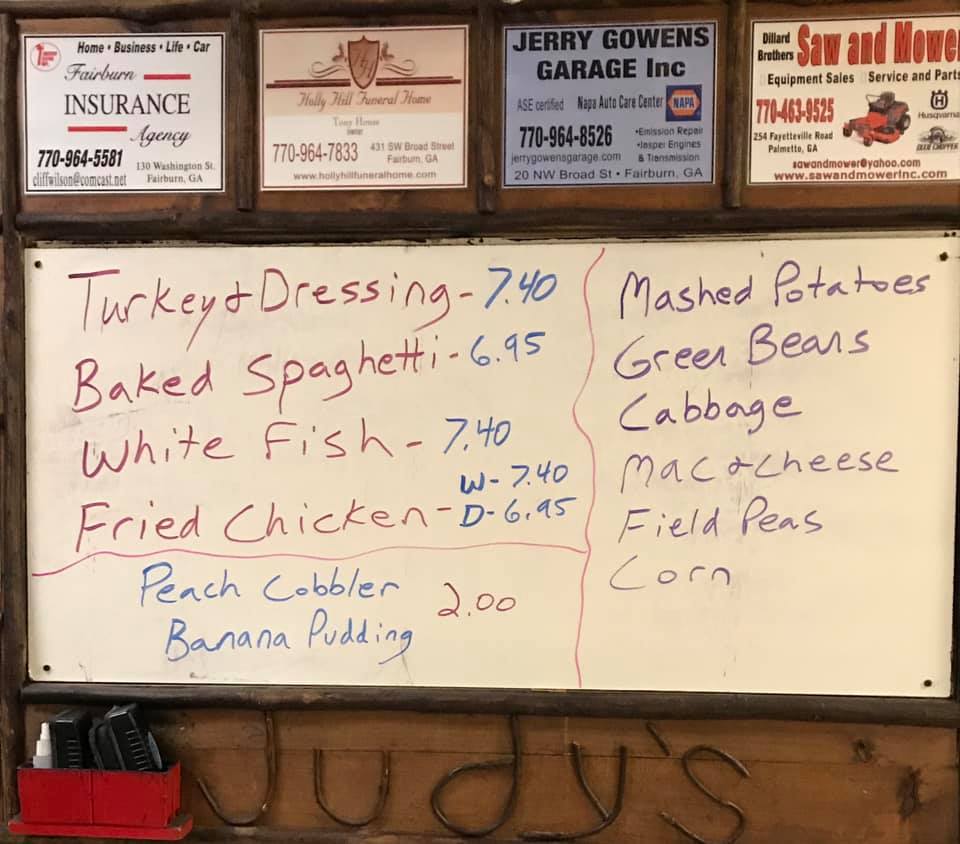 Home • Business • Life • Car
Fairburn
INSURANCE
Agency
770-964-5581
cliffwilson@comcast.net
130 Washington St.
Fairburn, GA
Holly Hill Funeral Home
Tony House
770-964-7833
431 SW Broad Street
Fairburn, GA
www.hollyhillfuneralhome.com
JERRY GOWENS
GARAGE Inc
ASE certified Napa Auto Care Center NAPA
770-964-8526
jerrygowensgarage.com
•Emission Repair
•Jasper Engines
& Transmission
20 NW Broad St • Fairburn, GA
Dillard
Brothers
Saw and Mower
Equipment Sales Service and Parts
770-463-9525
254 Fayetteville Road
Palmetto, GA
Husqvarna
sawandmower@yahoo.com
www.sawandmowerinc.com
Turkey & Dressing - 7.40
Baked Spaghetti - 6.95
White Fish - 7.40
W - 7.40
Fried Chicken - D - 6.95
Peach Cobbler
Banana Pudding
2.00
Mashed Potatoes
Green Beans
Cabbage
Mac & Cheese
Field Peas
Corn
Judy's